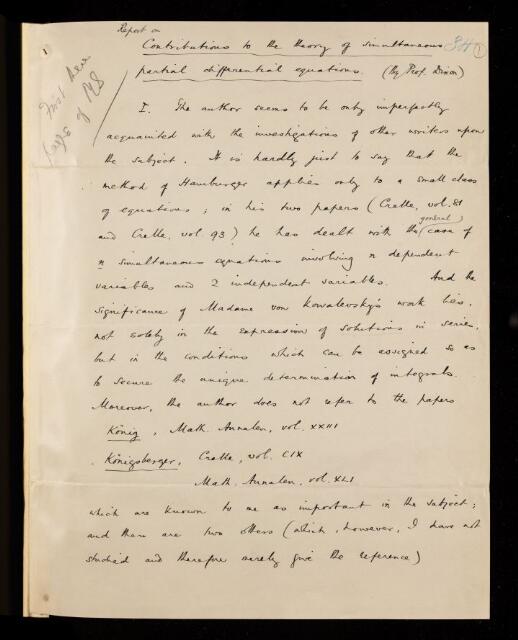 Report on
Contributions to the theory of simultaneous
partial differential equations. (By Prof. Dixon)
First three
pages of
1
I. The author seems to be only imperfectly
acquainted with the investigations of other writers upon
the subject. It is hardly just to say that the
method of Hamburger applies only to a small class
of equations; in his two papers (Crelle, vol. 81
and Crelle, vol. 93) he has dealt with the general case of
n simultaneous equations involving n dependent
variables and 2 independent variables. And the
significance of Madame von Kowalevsky's work lies,
not solely in the expression of solutions in series,
but in the conditions which can be assigned so as
to secure the unique determination of integrals.
Moreover, the author does not refer to the papers
König, Math. Annalen, vol. XXIII
Königsberger, Crelle, vol. CIX
Math. Annalen, vol. XLI
which are known to me as important in the subject;
and there are two others (which, however, I have not
studied and therefore merely give the reference)